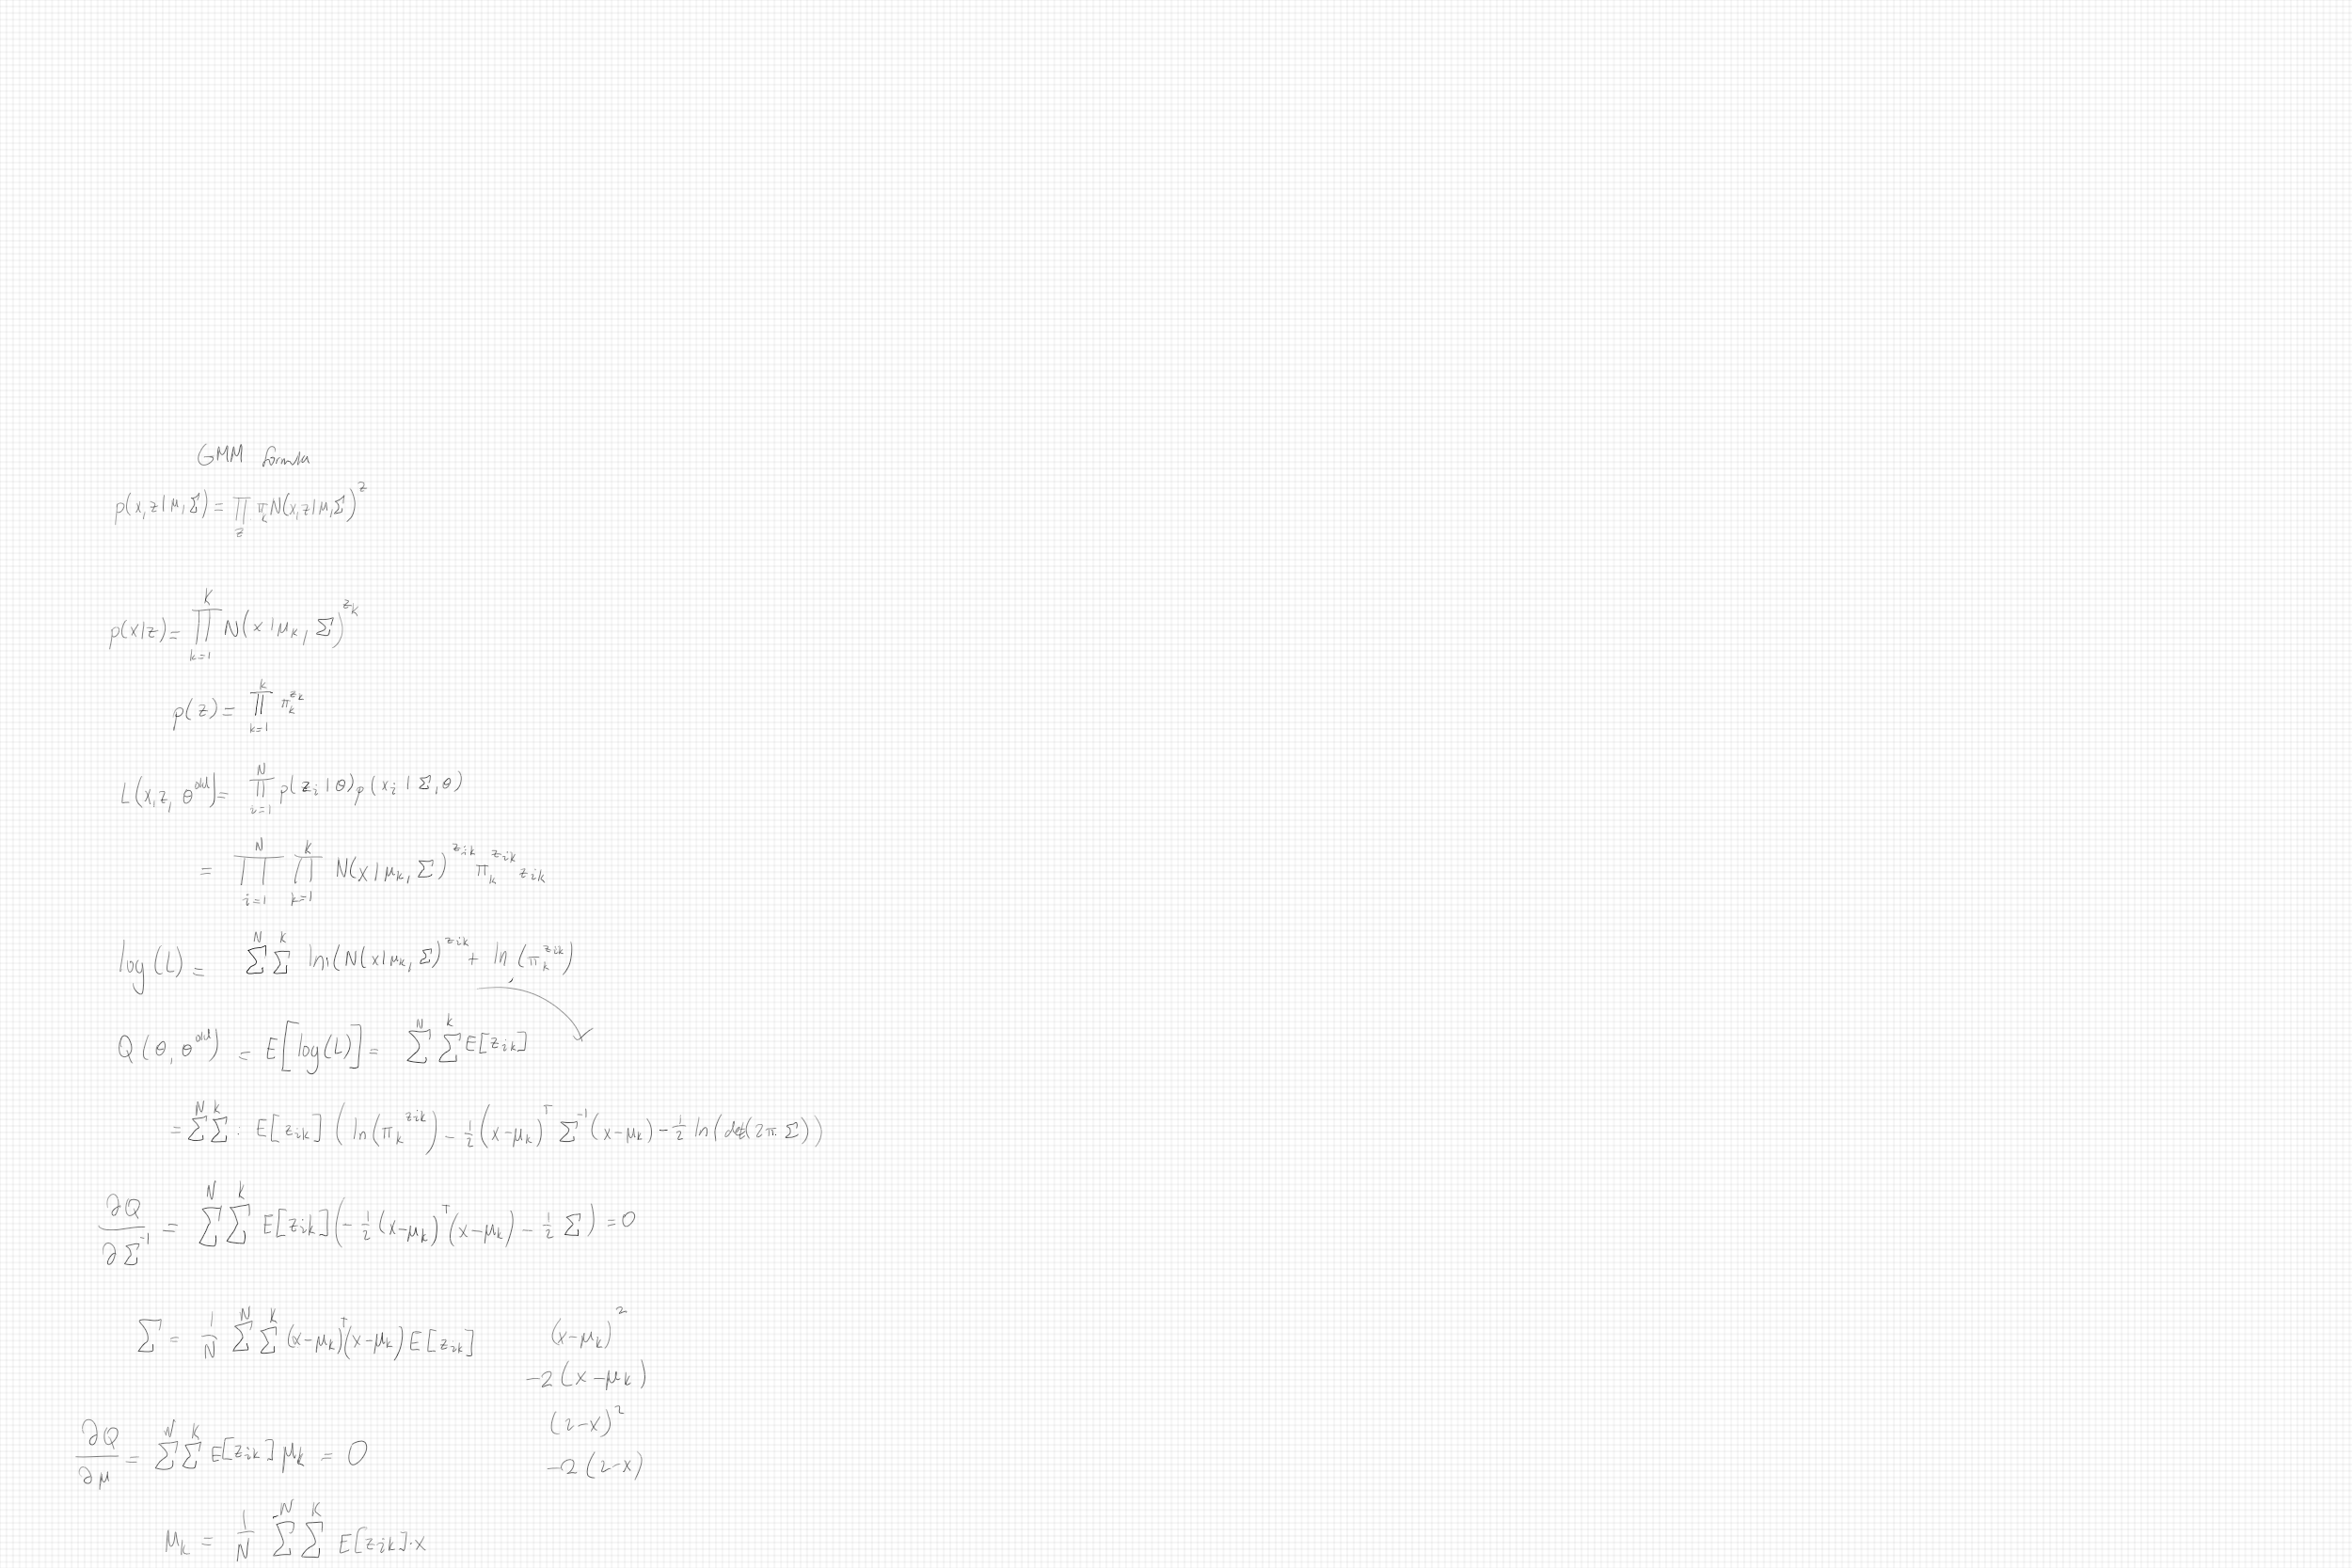 GMM formula
p(x, z | μ, Σ) = ∏_z π_k N(x, z | μ, Σ)^z
p(x|z) = ∏_{k=1}^K N(x | μ_k, Σ)^{z_k}
p(z) = ∏_{k=1}^k π_k^{z_k}
L(x, z, θ^{old}) = ∏_{i=1}^N p(z_i | θ) p(x_i | Σ, θ)
= ∏_{i=1}^N ∏_{k=1}^k N(x | μ_k, Σ)^{z_{ik}} π_k^{z_{ik}} z_{ik}
log(L) = Σ^N Σ^k ln(N(x | μ_k, Σ)^{z_{ik}} + ln(π_k^{z_{ik}})
Q(θ, θ^{old}) = E[log(L)] = Σ^N Σ^k E[z_{ik}]
= Σ^N Σ^k : E[z_{ik}] (ln(π_k^{z_{ik}}) - 1/2 (x-μ_k)^T Σ^{-1} (x-μ_k) - 1/2 ln(det(2π Σ)))
∂Q/∂Σ^{-1} = Σ^N Σ^k E[z_{ik}] (- 1/2 (x-μ_k)^T (x-μ_k) - 1/2 Σ) = 0
Σ = 1/N Σ^N Σ^k (x-μ_k)^T (x-μ_k) E[z_{ik}]
(x-μ_k)^2
-2(x-μ_k)
(2-x)^2
-2(2-x)
∂Q/∂μ = Σ^N Σ^K E[z_{ik}] μ_k = 0
μ_k = 1/N Σ^N Σ^K E[z_{ik}]·x